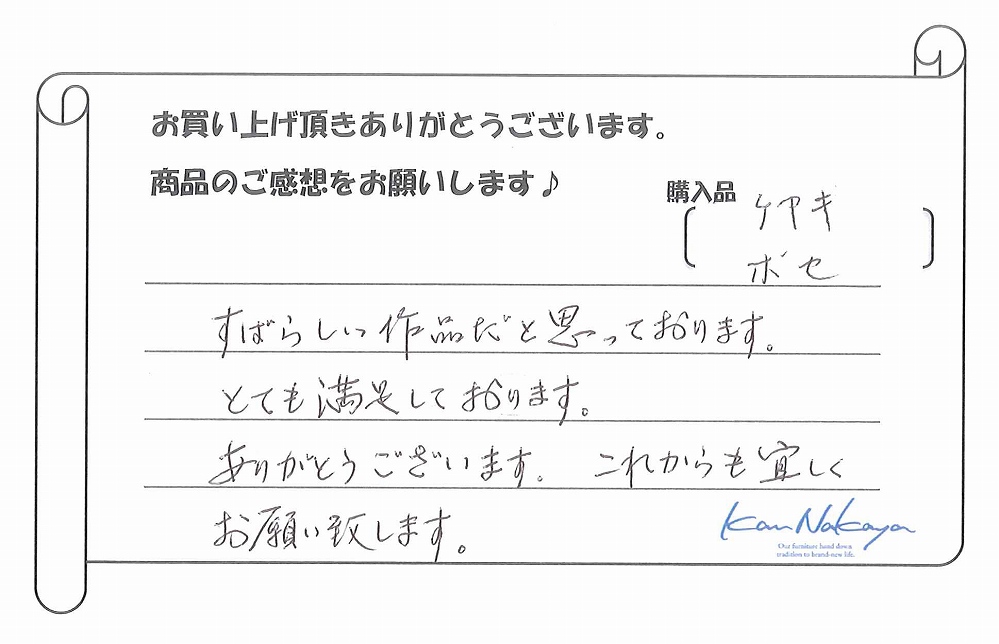 お買い上げ頂きありがとうございます。
商品のご感想をお願いします♪
購入品
ケヤキ
ボセ
すばらしい作品だと思っております。
とても満足しております。
ありがとうございます。 これからも宜しく
お願い致します。
Kan Nakaya
Our furniture hand down
tradition to brand-new life.